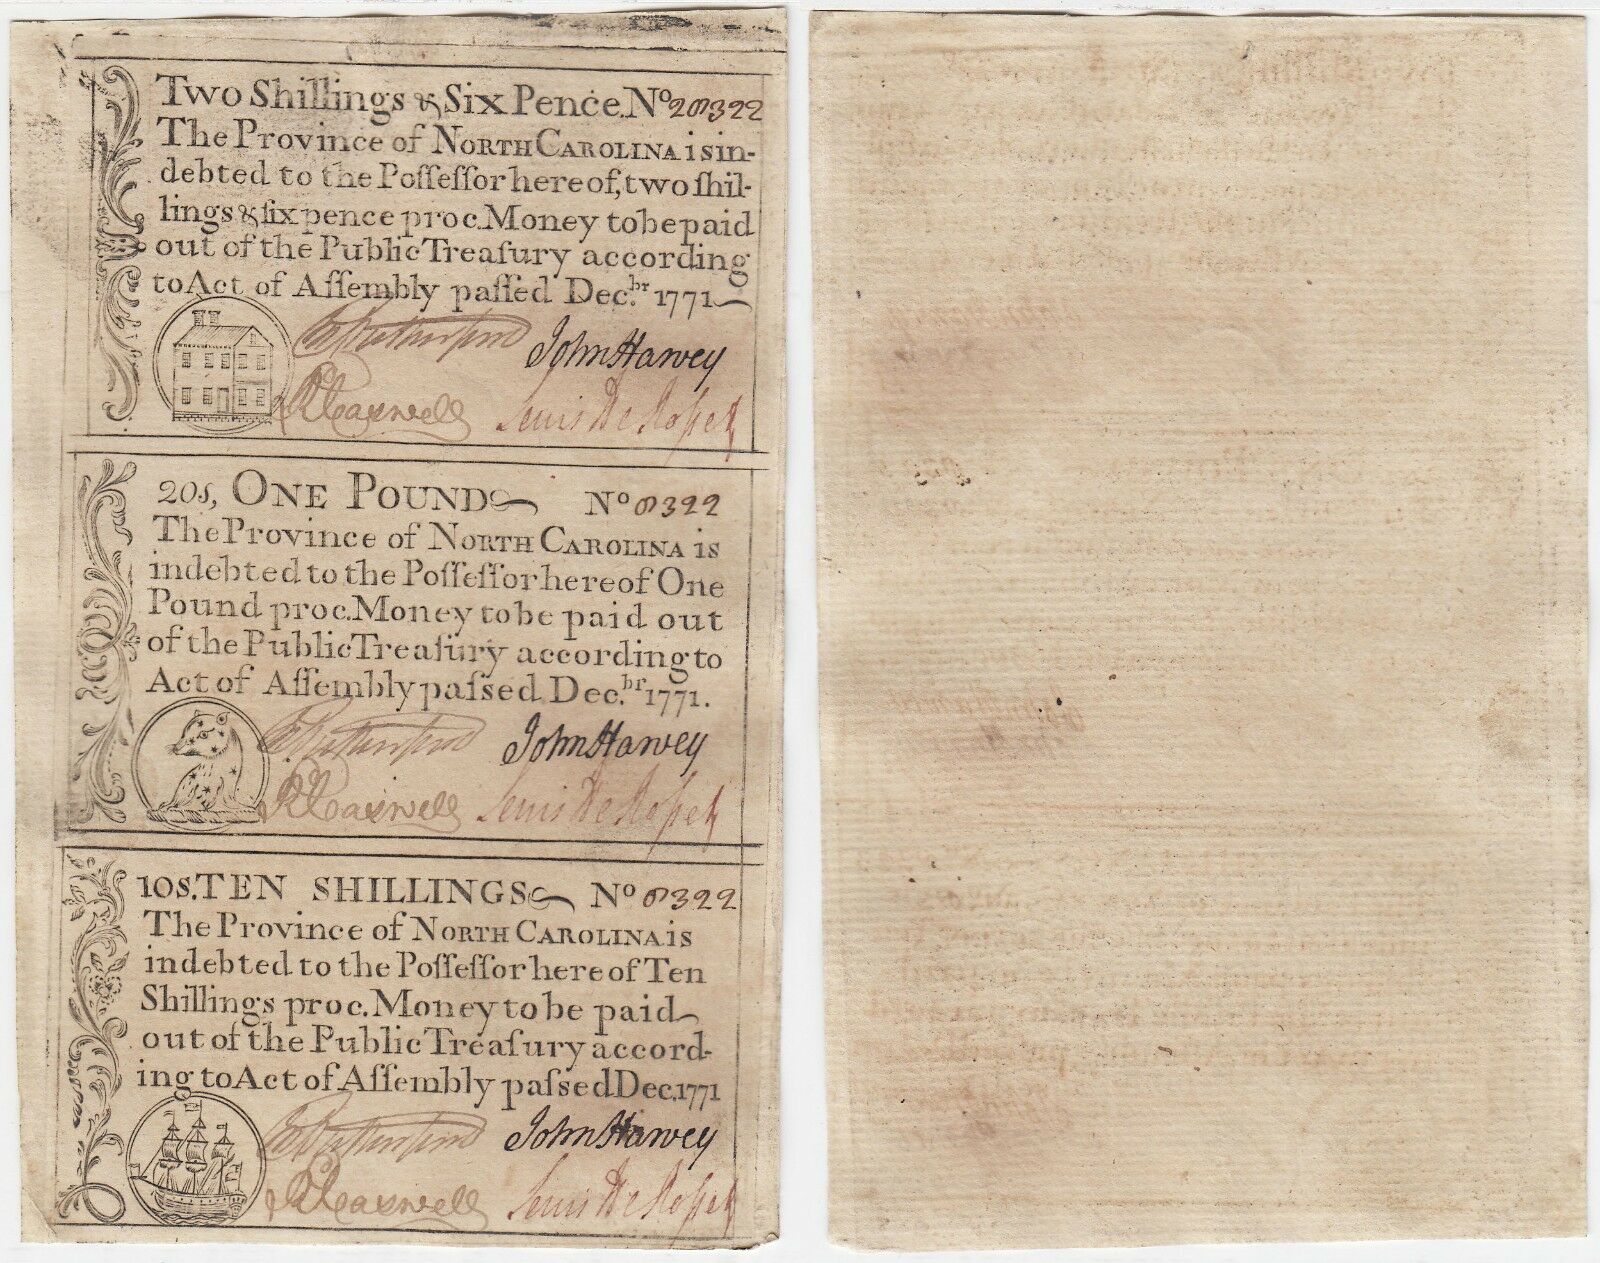 Two Shillings & Six Pence. No 20322
The Province of North Carolina is in-
debted to the Poſſeſſor hereof, two ſhil-
lings & ſix pence proc. Money to be paid
out of the Public Treaſury according
to Act of Aſſembly paſſed Dec.br 1771
John Harvey
Lewis De Roſſet
20s, One Pound No 322
The Province of North Carolina is
indebted to the Poſſeſſor hereof One
Pound proc. Money to be paid out
of the Public Treaſury according to
Act of Aſſembly paſsed Dec.br 1771.
John Harvey
Lewis De Roſſet
10s. TEN SHILLINGS No 322
The Province of North Carolina is
indebted to the Poſſeſſor here of Ten
Shillings proc. Money to be paid
out of the Public Treaſury accord-
ing to Act of Aſſembly paſsed Dec. 1771
John Harvey
Lewis De Roſſet